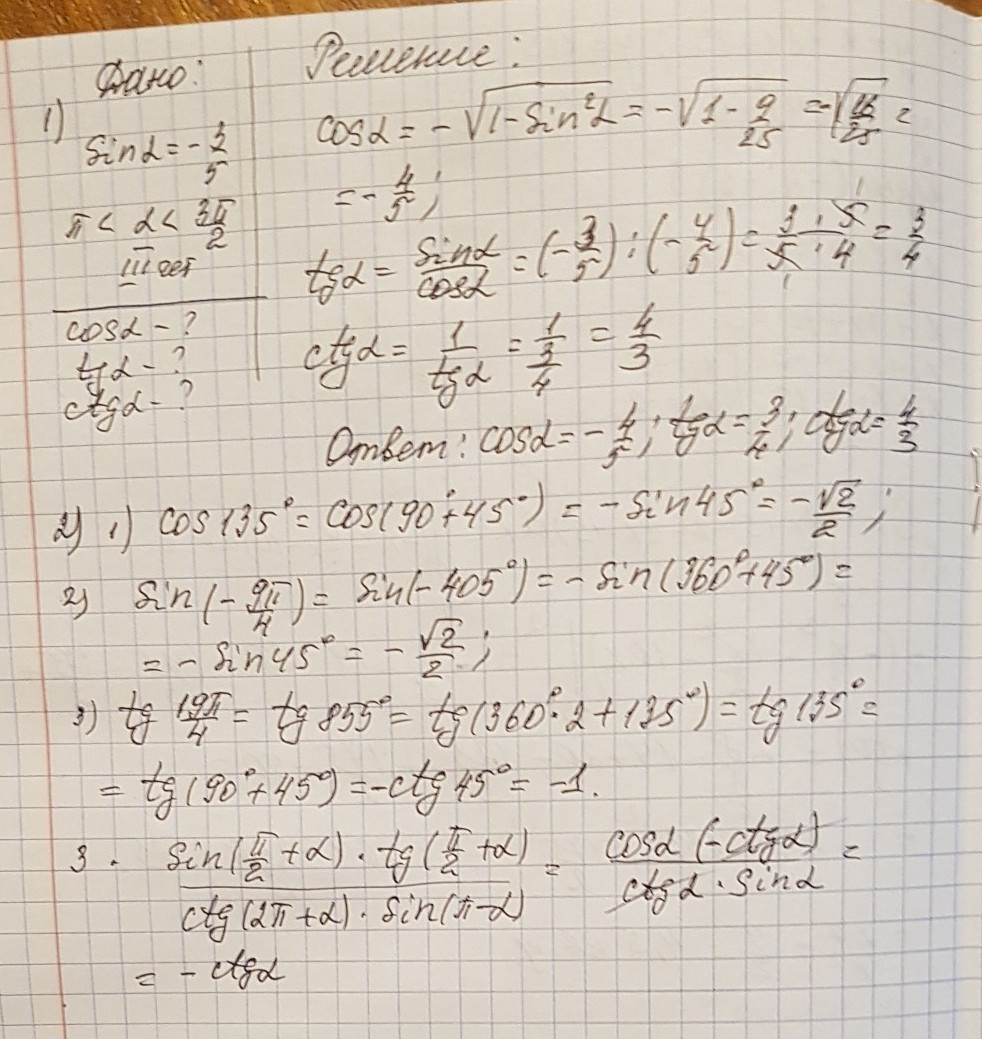 Дано:
1)
sinα = -3/5
π < α < 3π/2
III чет
cosα - ?
tgα - ?
ctgα - ?
Решение:
cosα = -√(1-sin²α) = -√(1 - 9/25) = -√(16/25) =
= -4/5;
tgα = sinα/cosα = (-3/5) : (-4/5) = (3 · 5)/(5 · 4) = 3/4
ctgα = 1/tgα = 1/(3/4) = 4/3
Ответ: cosα = -4/5; tgα = 3/4; ctgα = 4/3
2) 1) cos 135° = cos(90° + 45°) = -sin 45° = -√2/2;
2) sin(-9π/4) = sin(-405°) = -sin(360° + 45°) =
= -sin 45° = -√2/2;
3) tg 19π/4 = tg 855° = tg(360° · 2 + 135°) = tg 135° =
= tg(90° + 45°) = -ctg 45° = -1.
3. (sin(π/2 + α) · tg(π/2 + α))/(ctg(2π + α) · sin(π - α)) = (cosα (-ctgα))/(ctgα · sinα) =
= -ctgα